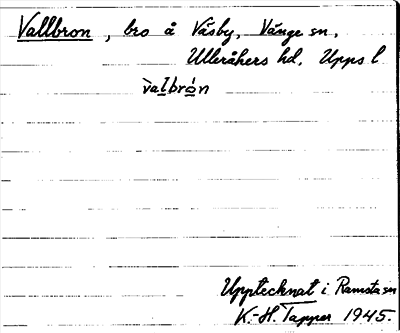 Vallbron, bro å Väsby, Vänge sn,
Ulleråkers hd. Upps l
valbrón
Upptecknat i Ramsta sn
K.-H. Tapper 1945.